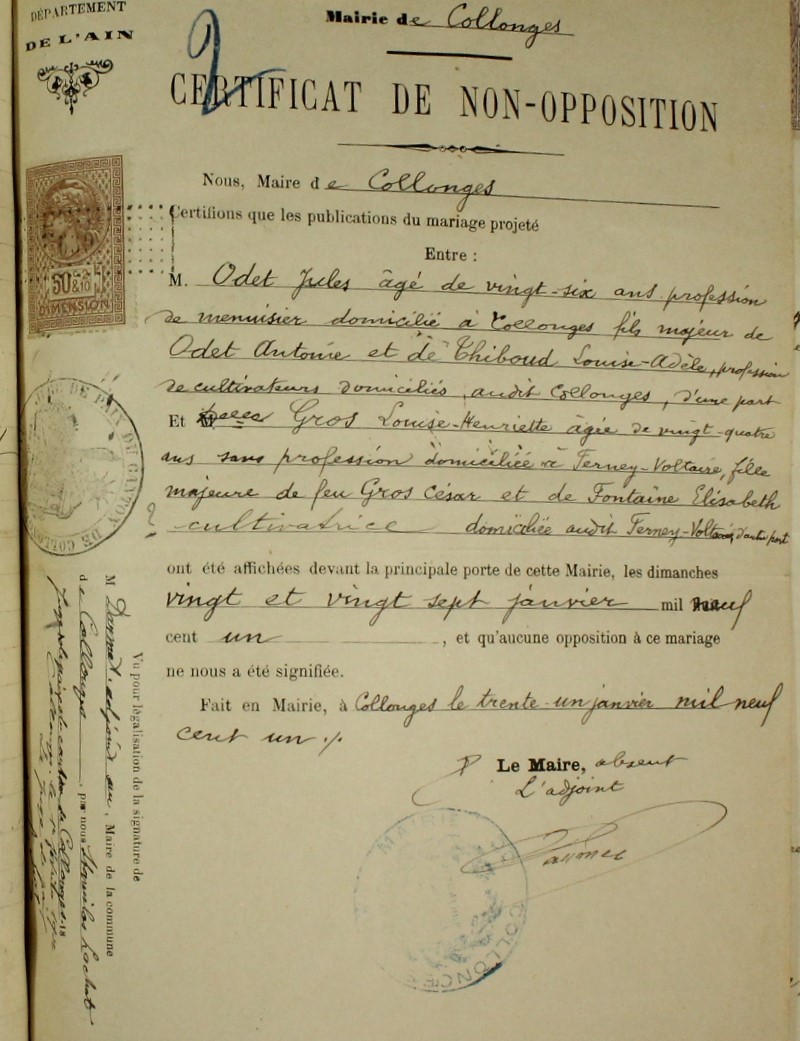 DÉPARTEMENT
DE L'AIN
Mairie de Collonges
CERTIFICAT DE NON-OPPOSITION
Nous, Maire de Collonges
Certifions que les publications du mariage projeté
Entre :
M. Odet Jules âgé de vingt-six ans profession
de menuisier domicilié à Collonges fils majeur de
Odet Antoine et de Thiboud Louise-Adèle, profession
de cultivateurs domiciliés audit Collonges, d'une part
Et Gros Louise-Henriette âgée de vingt-quatre
ans sans profession domiciliée à Ferney-Voltaire, fille
majeure de feu Gros César et de Fontaine Elisabeth
cultivatrice domiciliée audit Ferney-Voltaire, d'autre part
ont été affichées devant la principale porte de cette Mairie, les dimanches
vingt et vingt sept janvier mil neuf
cent un, et qu'aucune opposition à ce mariage
ne nous a été signifiée.
Fait en Mairie, à Collonges le trente-un janvier mil neuf
cent un ./.
P Le Maire, absent
L'adjoint
50c &
EN SUS
DIMENSION
COLLONGES
Vu pour légalisation de la signature de
M adjoint au, Maire de la commune
de Collonges, par nous